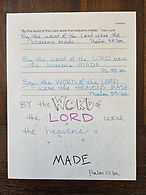 "By the word of the Lord were the heavens made."
By the word of the Lord were the
heavens made. Psalm 33:6a
By the word of the Lord were
the heavens MADE.
Ps. 33:6a
By the WORD of the LORD
were the HEAVENS MADE.
Psalm 33:6a
BY the WORD of
the LORD were
the heavens
MADE
Psalm 33:6a